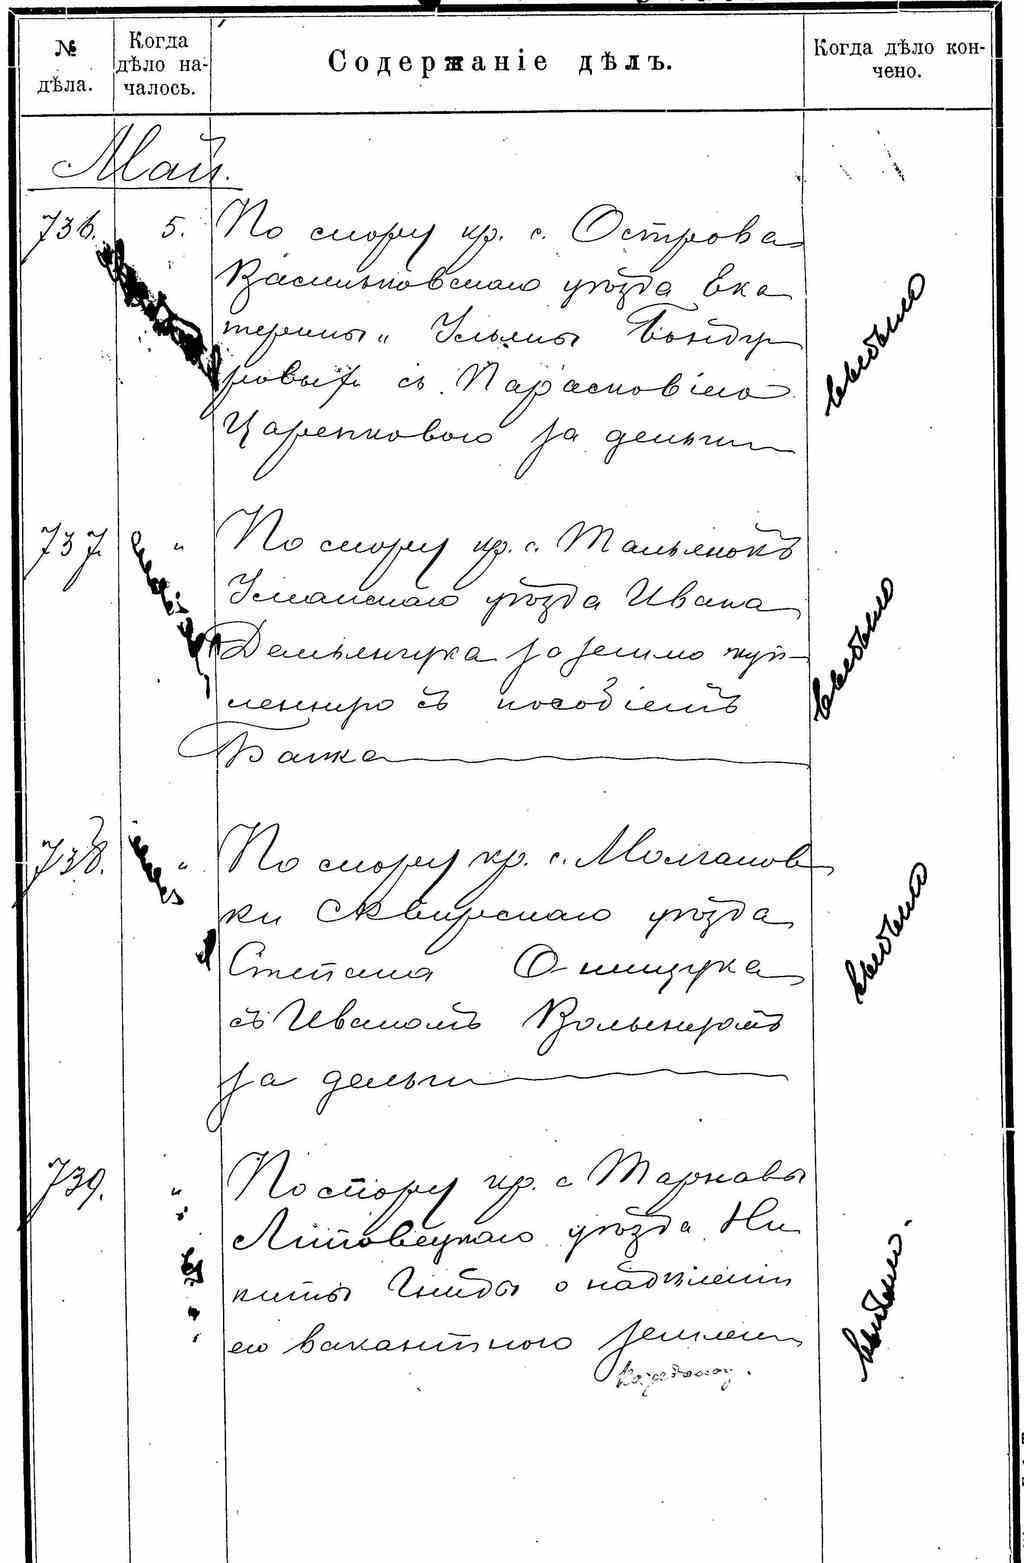 № дѣла.
Когда дѣло на-
чалось.
Содержаніе дѣлъ.
Когда дѣло кон-
чено.
Май.
736. 5. По спору кр. с. Острова
Васильковскаго уѣзда Ека
терины и Ульяны Бонду
ровыхъ съ Парасковіею
Царенковою за деньги
выбыло
737. " По спору кр. с. Тальянокъ
Уманскаго уѣзда Ивана
Демьянчука за землю куп-
ленную съ пособіемъ
Банка
выбыло
738. " По спору кр. с. Молчанов
ки Сквирскаго уѣзда
Степана Онищука
съ Иваномъ Волынцомъ
за деньги
выбыло
739. " По спору кр. с. Тарнавы
Липовецкаго уѣзда Ни
киты Гниды о надѣленіи
его вакантною землею
выбыло.